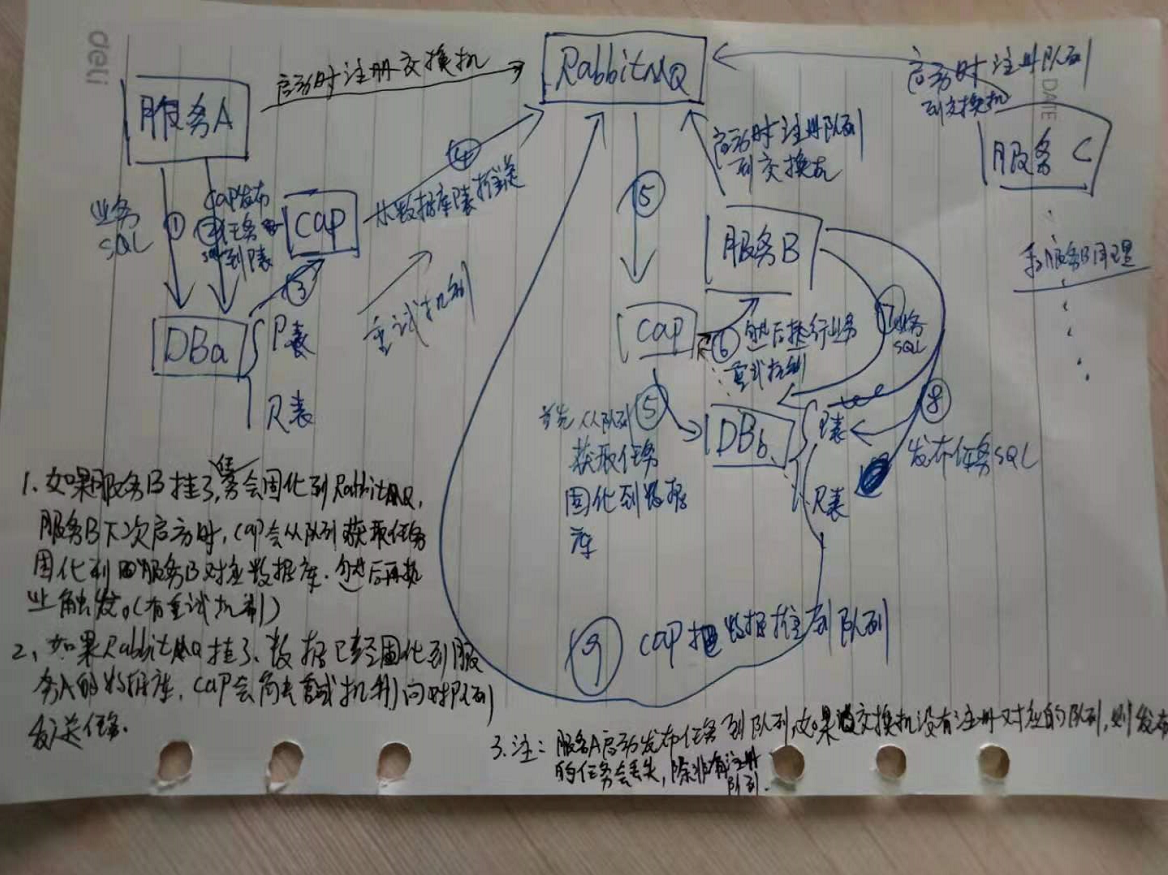 deli
DATE
RabbitMQ
启动时注册交换机
服务A
启动时注册队列
到交换机
服务C
启动时注册队列
到交换机
业务
SQL
①
②
cap发布
任务
SQL
到P表
cap
③
④
从数据库P表推送
重试机制
DBa
P表
R表
⑤
服务B
和服务B同理
cap
⑥
然后执行业务
重试机制
⑦
业务
SQL
⑧
发布任务SQL
⑤
首先从队列
获取任务
固化到数据
库
DBb
P表
R表
1、如果服务B挂了,会固化到RabbitMQ,
服务B下次启动时,cap会从队列获取任务
固化到服务B对应数据库.然后再执
业触发。(有重试机制)
2、如果RabbitMQ挂了、数据已经固化到服
务A的数据库,cap会有重试机制向对列
发送任务.
⑨
cap把数据推到队列
3.注:服务A启动发布任务到队列,如果交换机没有注册对应的队列,则发布
的任务会丢失,除非有注册
队列.